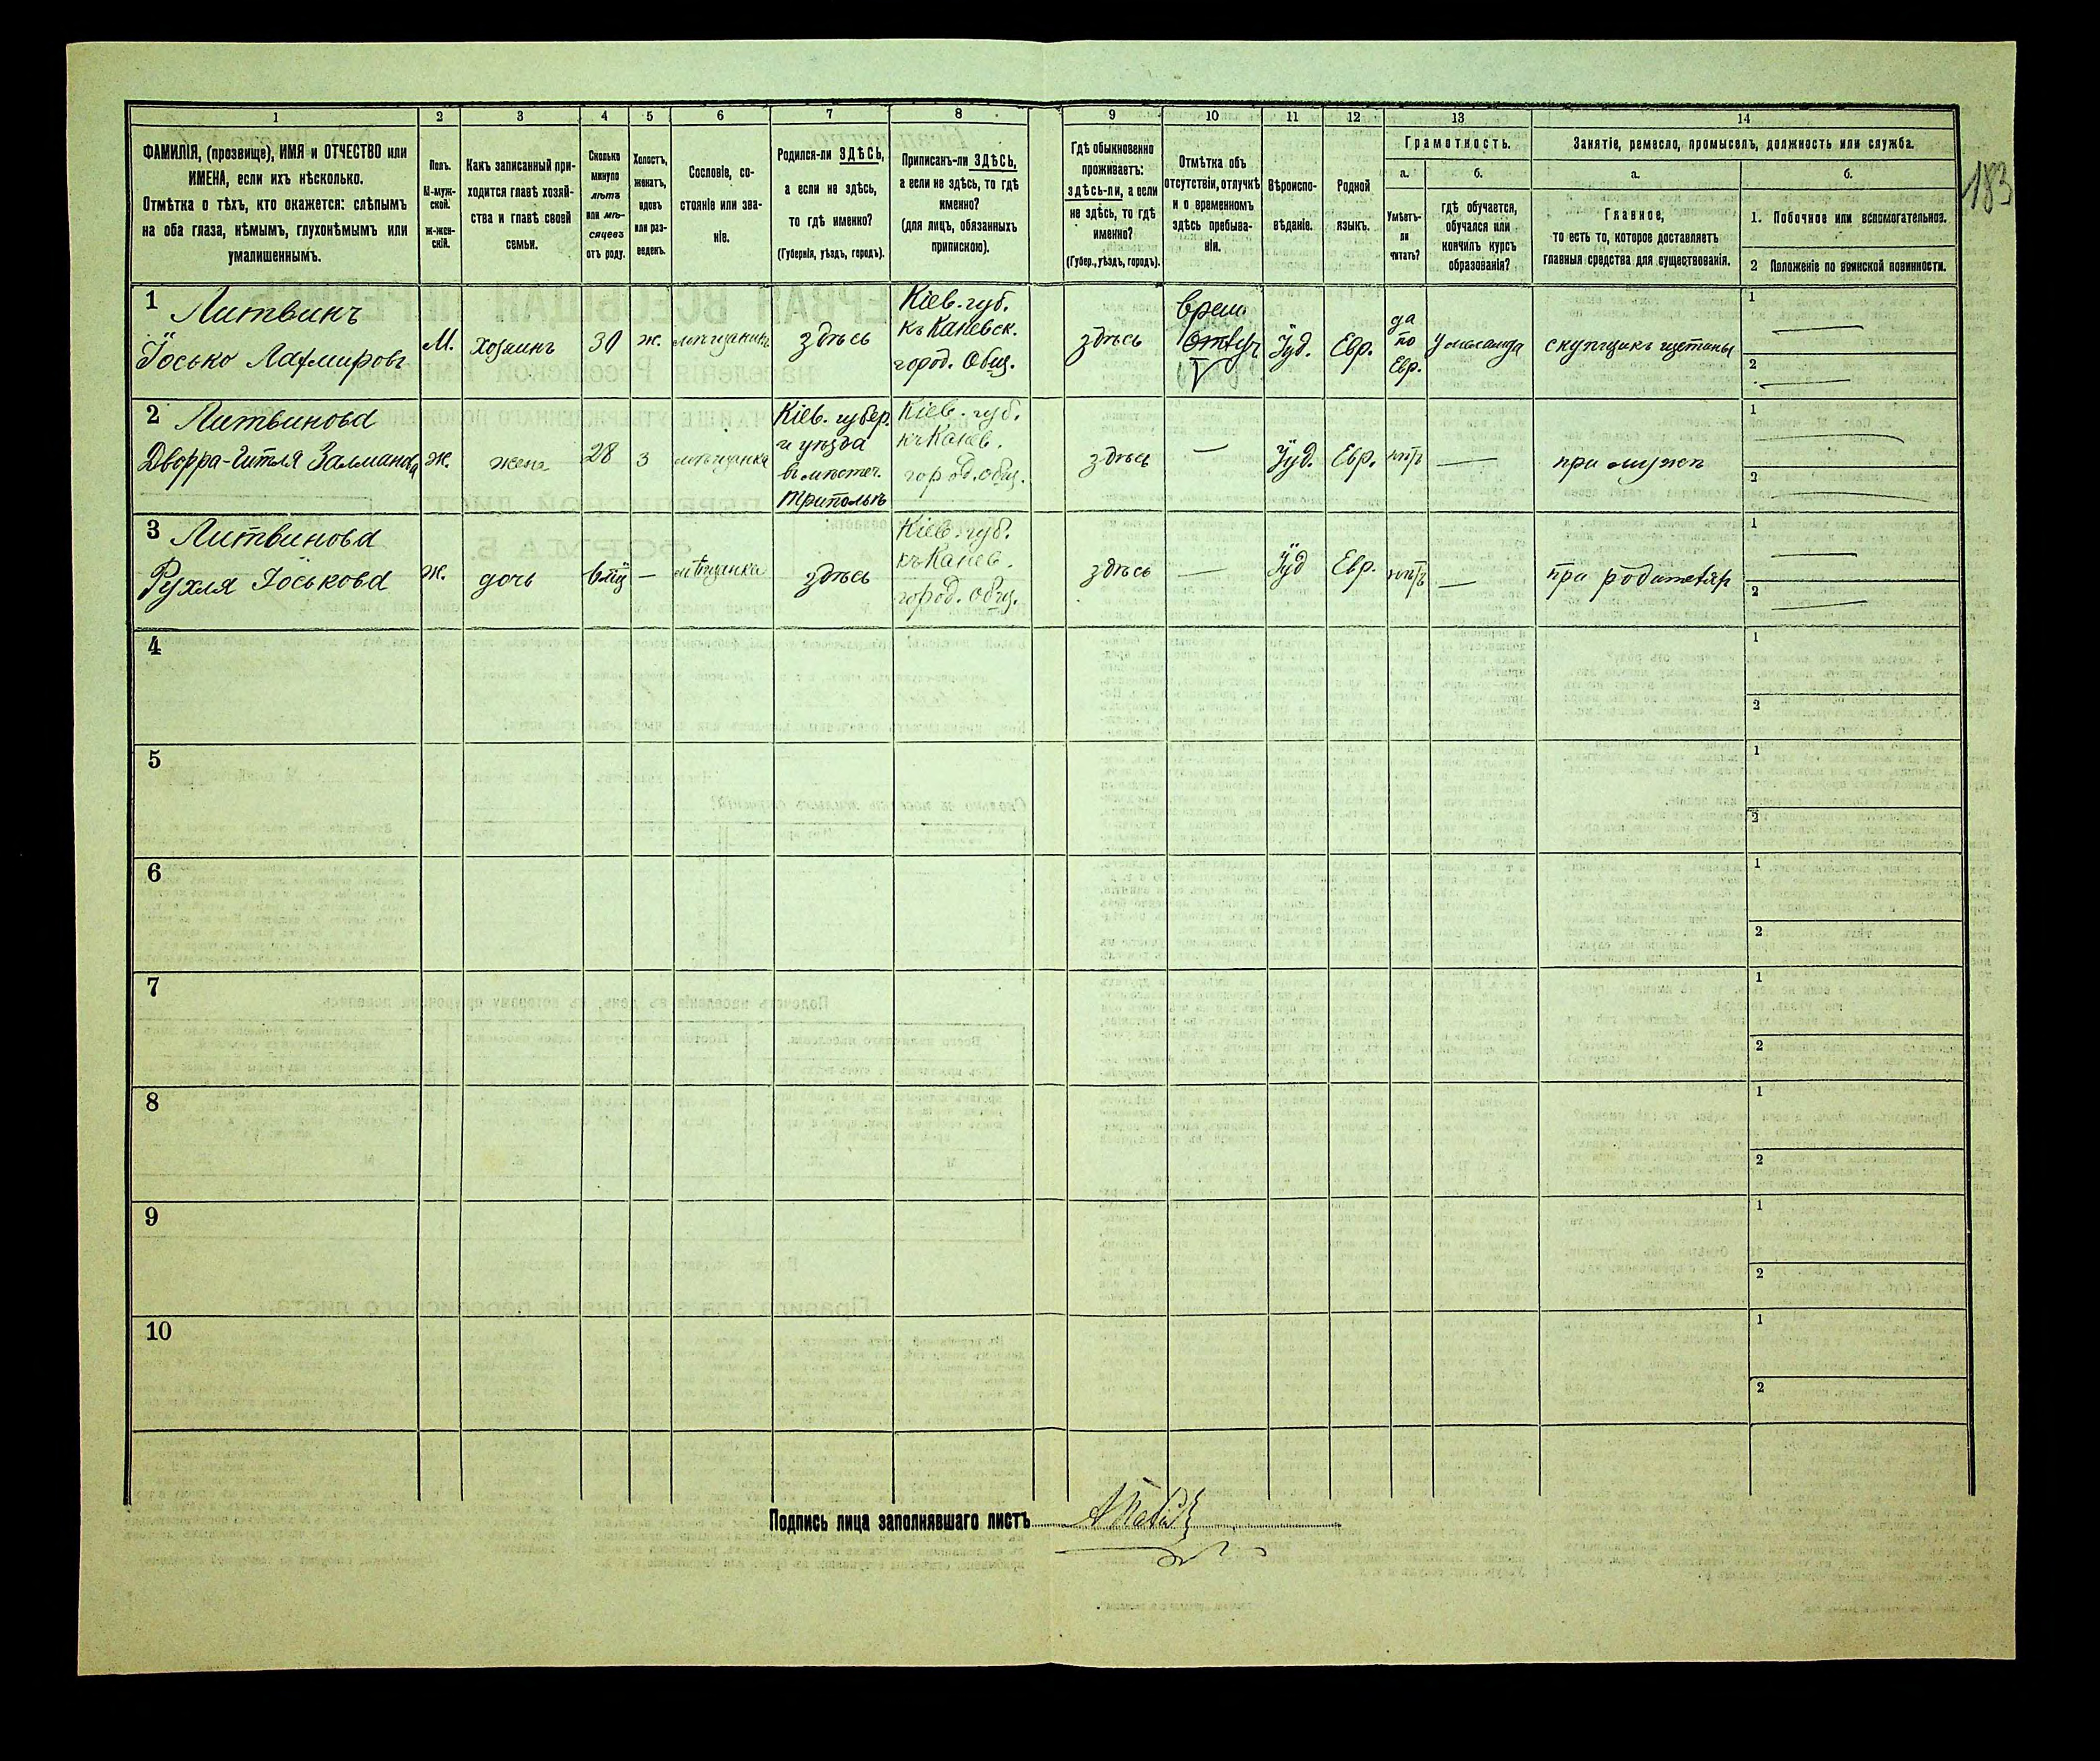 183
1 2 3 4 5 6 7 8 9 10 11 12 13 14
ФАМИЛІЯ, (прозвище), ИМЯ и ОТЧЕСТВО или
ИМЕНА, если ихъ нѣсколько.
Отмѣтка о тѣхъ, кто окажется: слѣпымъ
на оба глаза, нѣмымъ, глухонѣмымъ или
умалишеннымъ.
Полъ.
М-муж-
ской.
Ж-жен-
скій.
Какъ записанный при-
ходится главѣ хозяй-
ства и главѣ своей
семьи.
Сколько
минуло
лѣтъ
или мѣ-
сяцевъ
отъ роду.
Холостъ,
женатъ,
вдовъ
или раз-
веденъ.
Сословіе, со-
стояніе или зва-
ніе.
Родился-ли ЗДѢСЬ,
а если не здѣсь,
то гдѣ именно?
(Губернія, уѣздъ, городъ).
Приписанъ-ли ЗДѢСЬ,
а если не здѣсь, то гдѣ
именно?
(для лицъ, обязанныхъ
припискою).
Гдѣ обыкновенно
проживаетъ:
здѣсь-ли, а если
не здѣсь, то гдѣ
именно?
(Губер., уѣздъ, городъ).
Отмѣтка объ
отсутствіи, отлучкѣ
и о временномъ
здѣсь пребыва-
ніи.
Вѣроиспо-
вѣданіе.
Родной
языкъ.
Грамотность.
а.
Умѣетъ-
ли
читать?
б.
гдѣ обучается,
обучался или
кончилъ курсъ
образованія?
Занятіе, ремесло, промыселъ, должность или служба.
а.
Главное,
то есть то, которое доставляетъ
главныя средства для существованія.
б.
1. Побочное или вспомогательное.
2 Положеніе по воинской повинности.
1 Литвинъ
Іосько
М.
хозяинъ
30
ж.
мѣщанинъ
здѣсь
Кіев. губ.
къ Каневск.
город. Общ.
здѣсь
Врем.
Отлуч
Іуд.
Евр.
да
по
Евр.
У меламда
скупщикъ щетины
1
2
2 Литвинова
Двойра-Гитля Залманова
ж.
жена
28
з
мѣщанка
Кіев. губер.
и уѣзда
въ мѣстеч.
Триполье
Кіев. губ.
къ Канев.
город. общ.
здѣсь
—
Іуд.
Евр.
нѣтъ
—
при мужѣ
1
2
3 Литвинова
Рухля Іоськова
ж.
дочь
—
мѣщанка
здѣсь
Кіев. губ.
къ Канев.
город. общ.
здѣсь
—
Іуд
Евр.
нѣтъ
—
при родителях
1
2
4
1
2
5
1
2
6
1
2
7
1
2
8
1
2
9
1
2
10
1
2
Подпись лица заполнявшаго листъ